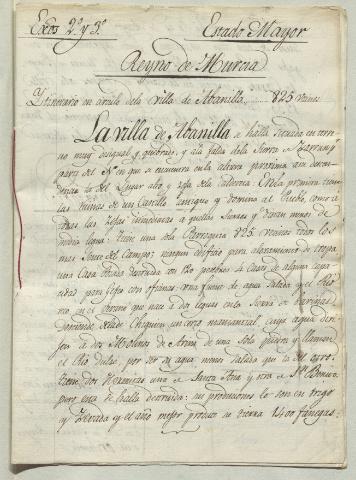 Exos 2º y 3º Estado Mayor
Reyno de Murcia
Ytinerario en circulo dela villa de Abanilla 825 vecinos
LA villa de Abanilla se halla situada en terre
no muy desigual y quebrado, y ala falda dela Sierra de
parte del N en que se enumera en la altura proxima
la del Lugar alto y de la Calavera: En la primera tiene
las ruinas de un Castillo antiguo y domina el Pueblo, como à
todas las inmediatas à quellas Sierras y distan menos de
media legua: tiene una sola Parroquia 825 vecinos todos los
mas Jorn. del Campo: ningun edificio para alojamiento de tropa
una Casa arruinada con 120 de Casas de alguna capa
cidad para Jefes con oficinas: una fuente de agua salada y el Rio
en el termino que nace à dos leguas en la Sierra de Barinas
de Chiquen, un corto manantial, cuya agua
à dos Molinos de Arina de una sola piedra y llaman
el Rio dulce, por ser su agua menos salada que la del otro:
tiene dos Hermitas una de Santa Ana y otra de Sn Benito
pero esta se halla destruida: sus producciones lo son en trigo
y Zevada y el año mejor produce su tierra 1400 fanegas: